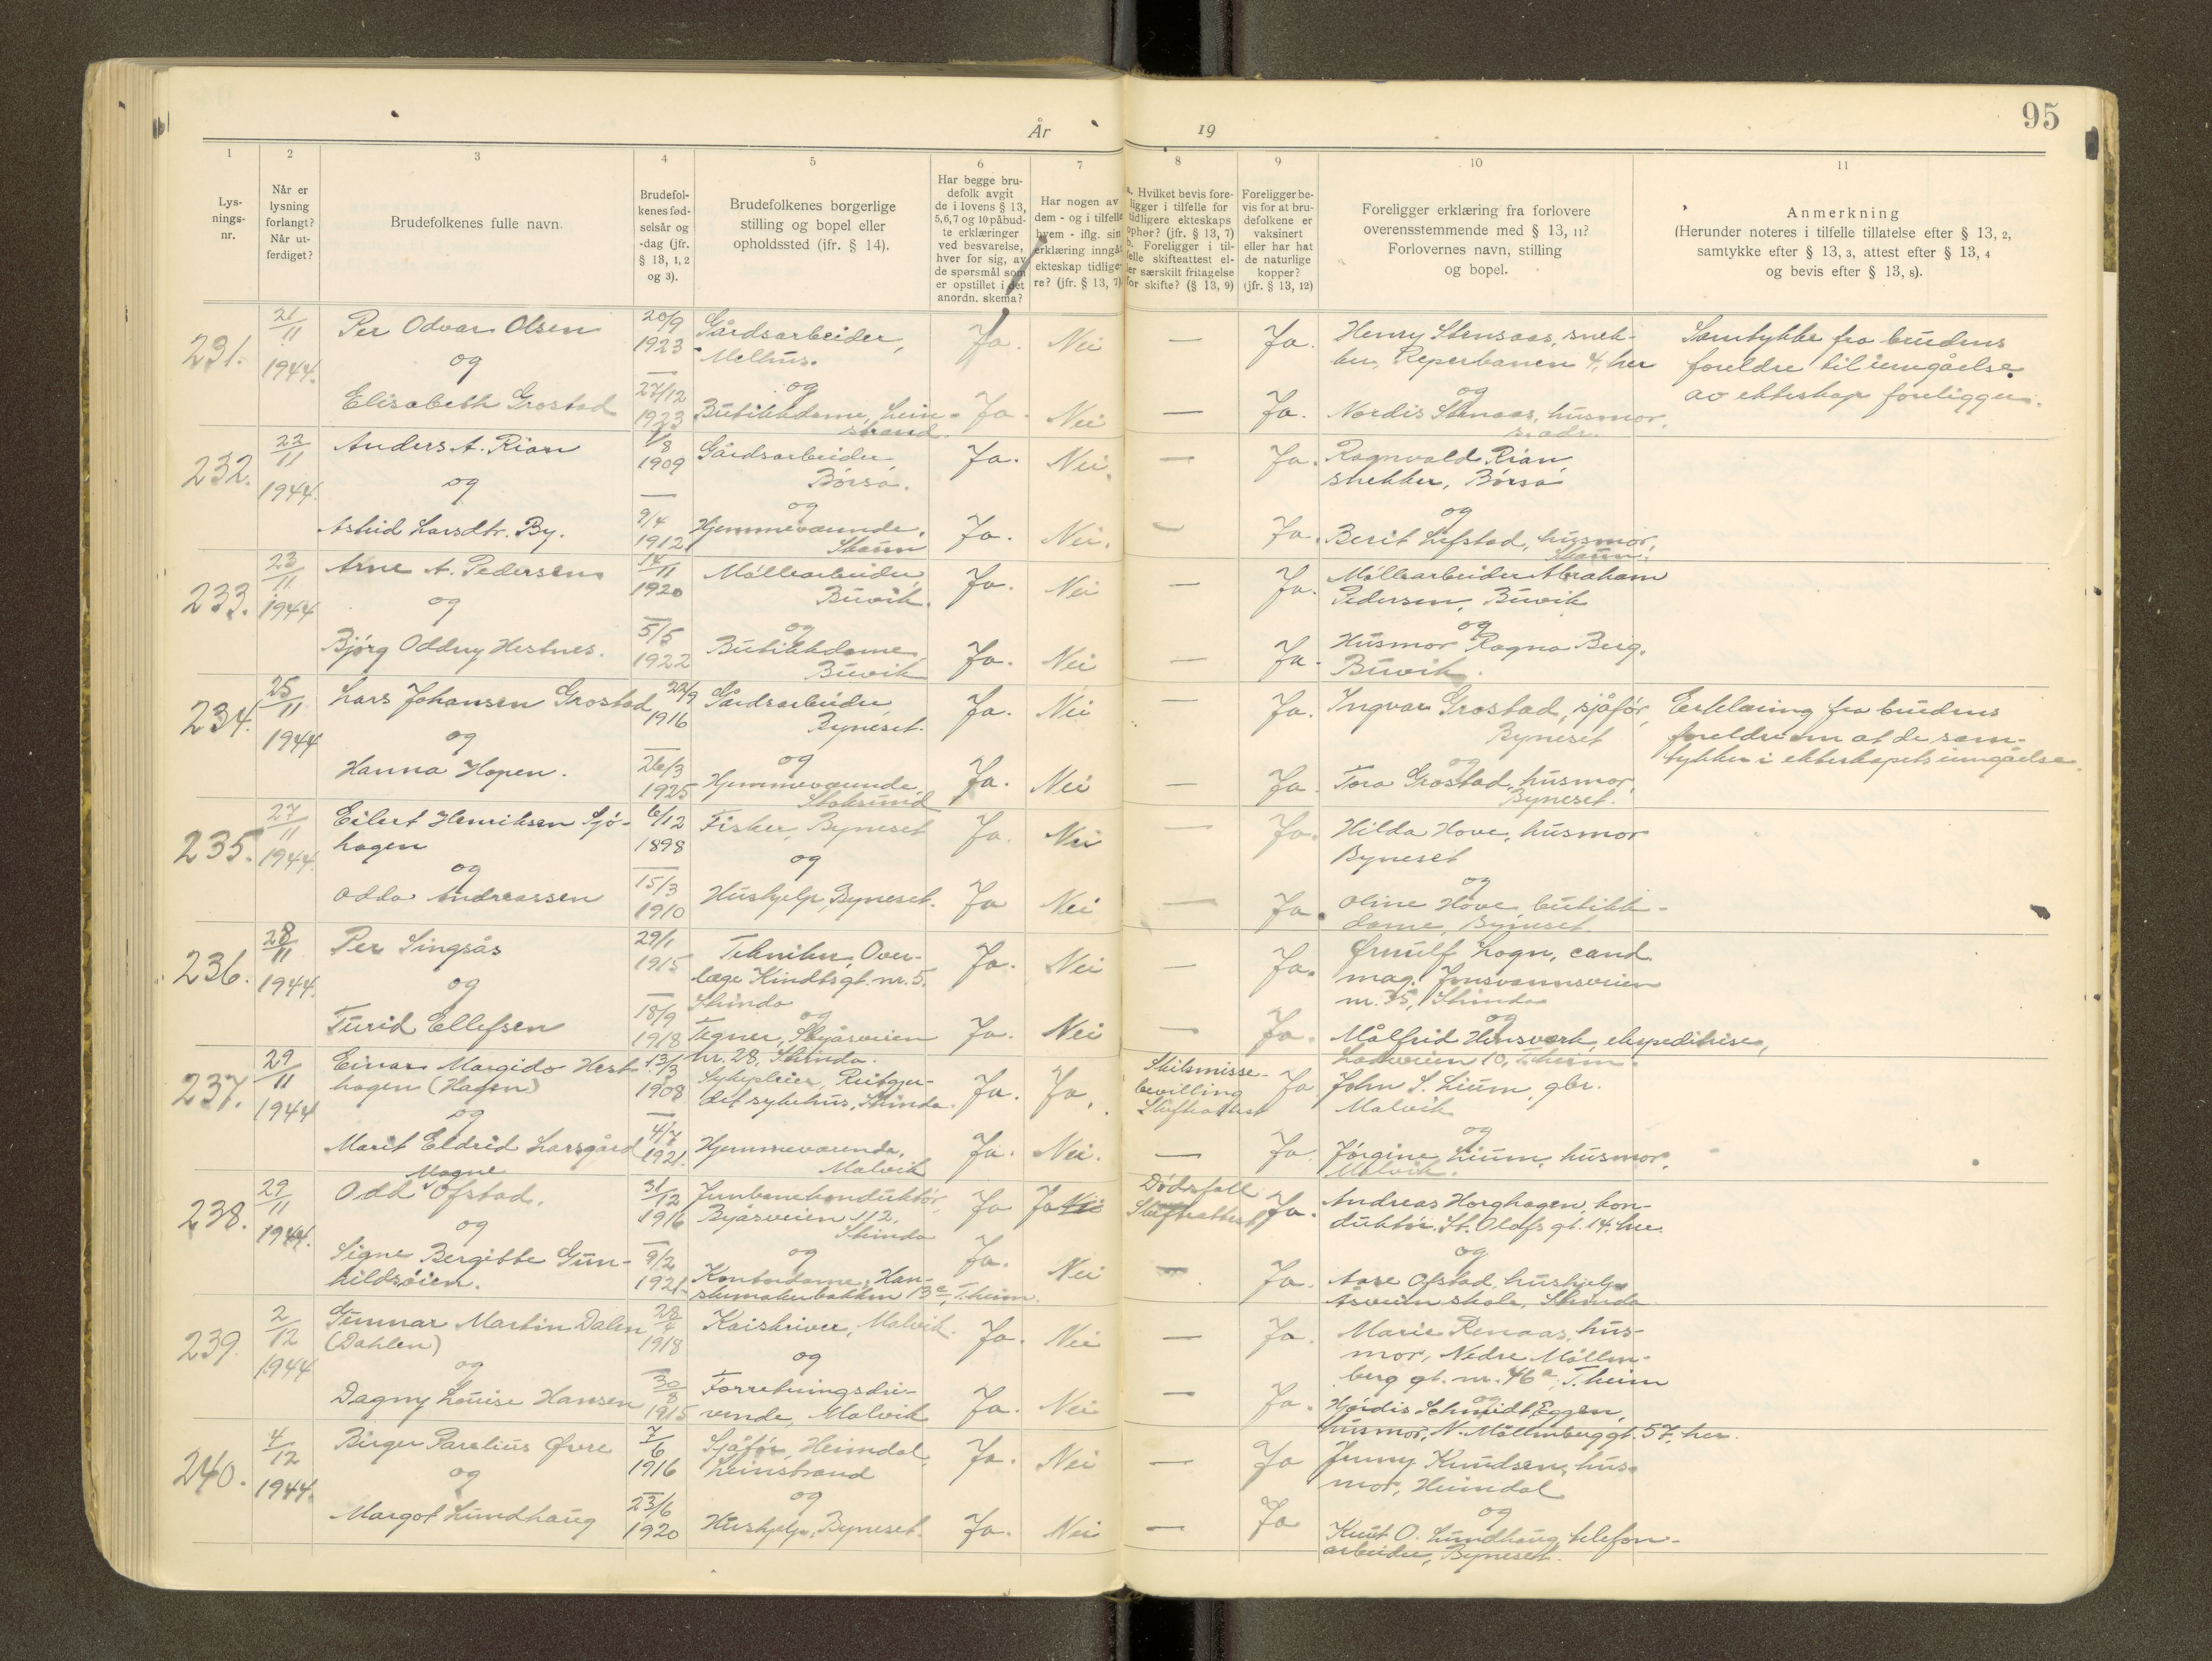 95
År 19
1 2 3 4 5 6 7 8 9 10 11
Lys-
nings-
nr.
Når er
lysning
forlangt?
Når ut-
ferdiget?
Brudefolkenes fulle navn.
Brudefol-
kenes fød-
selsår og
-dag (jfr.
§ 13, 1, 2
og 3).
Brudefolkenes borgerlige
stilling og bopel eller
opholdssted (jfr. § 14).
Har begge bru-
defolk avgit
de i lovens § 13,
5,6,7 og 10 påbud-
te erklæringer
ved besvarelse,
hver for sig, av
de spørsmål som
er opstillet i det
anordn. skema?
Har nogen av
dem - og i tilfelle
hvem - iflg. sin
erklæring inngåt
ekteskap tidlige-
re? (jfr. § 13, 7)
a. Hvilket bevis fore-
ligger i tilfelle for
tidligere ekteskaps
ophør? (jfr. § 13, 7)
b. Foreligger i til-
felle skifteattest el-
ler særskilt fritagelse
for skifte? (§ 13, 9)
Foreligger be-
vis for at bru-
defolkene er
vaksinert
eller har hat
de naturlige
kopper?
(jfr. § 13, 12)
Foreligger erklæring fra forlovere
overensstemmende med § 13, 11?
Forlovernes navn, stilling
og bopel.
Anmerkning
(Herunder noteres i tilfelle tillatelse efter § 13, 2,
samtykke efter § 13, 3, attest efter § 13, 4
og bevis efter § 13, 8).
231. 21/11 1944.
Per Odvar Olsen
og
Elisabeth Grostad
20/9 1923
27/12 1923
Gårdsarbeider,
Melhus.
og
Butikkdame, Lein-
strand.
Ja. Nei — Ja.
Ja. Nei — Ja.
Henry Stensaas, snek-
ker, Reperbanen 4, her
og
Nordis Stenaas, husmor,
s. adr.
Samtykke fra brudens
foreldre til inngåelse
av ekteskap foreligger.
232. 22/11 1944.
Anders A. Rian
og
Astrid Larsdtr. By.
1/8 1909
9/4 1912
Gårdsarbeider,
Børsa.
og
Hjemmeværende,
Skaun
Ja. Nei. — Ja.
Ja. Nei. — Ja.
Ragnvald Rian,
snekker, Børsa
og
Berit Lefstad, husmor,
Skaun.
233. 23/11 1944
Arne A. Pedersen
og
Bjørg Oddny Hestnes.
14/11 1920
5/5 1922
Møllearbeider,
Buvik.
og
Butikkdame,
Buvik
Ja. Nei — Ja.
Ja. Nei — Ja.
Møllearbeider Abraham
Pedersen, Buvik
og
Husmor Ragna Berg,
Buvik.
234. 25/11 1944
Lars Johansen Grostad
og
Hanna Hopen.
22/9 1916
26/3 1925
Gårdsarbeider,
Byneset.
og
Hjemmeværende,
Stoksund
Ja. Nei — Ja.
Ja. Nei — Ja.
Ingvar Grostad, sjåfør,
Byneset
og
Tora Grostad, husmor,
Byneset.
Erklæring fra brudens
foreldre om at de sam-
tykker i ekteskapets inngåelse.
235. 27/11 1944.
Eilert Henriksen Sjø-
hagen
og
Odda Andreassen
6/12 1898
15/3 1910
Fisker, Byneset
og
Hushjelp, Byneset.
Ja. Nei — Ja.
Ja Nei — Ja.
Hilda Hove, husmor
Byneset
og
Oline Hove, butikk-
dame, Byneset
236. 28/11 1944.
Per Singsås
og
Turid Ellefsen
29/1 1915
18/9 1918
Tekniker, Over-
læge Kindtsgt. nr. 5,
Strinda
og
Tegner, Skyåsveien
nr. 28, Strinda.
Ja. Nei — Ja.
Ja. Nei — Ja.
Ørnulf Logn, cand.
mag. Jonsvannsveien
nr. 35, Strinda
og
Målfrid Hensverk, ekspeditrise,
Ladeveien 10, T.heim.
237. 29/11 1944
Einar Margido Hest-
hagen (Hagen)
og
Marit Eldrid Larsgård
13/3 1908
4/7 1921.
Sykepleier, Reitgjer-
det sykehus, Strinda.
Hjemmeværende,
Malvik
Ja. Ja.
Skilsmisse-
bevilling
Skifteattest
Ja
Ja. Nei. — Ja.
John S. Lium, gbr.
Malvik
og
Jørgine Lium, husmor,
Malvik.
238. 29/11 1944.
Odd Magne Ofstad.
og
Signe Bergitte Gun-
hildsøien.
31/12 1916
9/2 1921.
Jernbanekonduktør,
Byåsveien 112,
Strinda
og
Kontordame, Han-
skemakerbakken 13c, T.heim.
Ja Ja Nei
Dødsfall
Skifteattest
Ja.
Ja. Nei — Ja.
Andreas Horghagen, kon-
duktør, St. Olafs gt. 14, her.
og
Aase Ofstad, hushjelp
Åsveien skole, Strinda
239. 2/12 1944
Gunnar Martin Dalen
(Dahlen)
og
Dagny Louise Hansen
1918
30/8 1915
Kaiskriver, Malvik.
og
Forretningsdri-
vende, Malvik
Ja. Nei — Ja.
Ja. Nei — Ja.
Marie Renaas, hus-
mor, Nedre Møllen-
berg gt. nr. 46a, T.heim
og
Hjørdis Schmidt Eggen,
husmor, N. Møllenberg gt. 57, her.
240. 4/12 1944.
Birger Parelius Øvre
og
Margot Lundhaug
7/6 1916
23/6 1920
Sjåfør, Heimdal,
Leinstrand
og
Hushjelp, Byneset.
Ja. Nei — Ja
Ja. Nei — Ja
Jenny Knudsen, hus-
mor, Heimdal
og
Knut O. Lundhaug, telefon-
arbeider, Byneset.